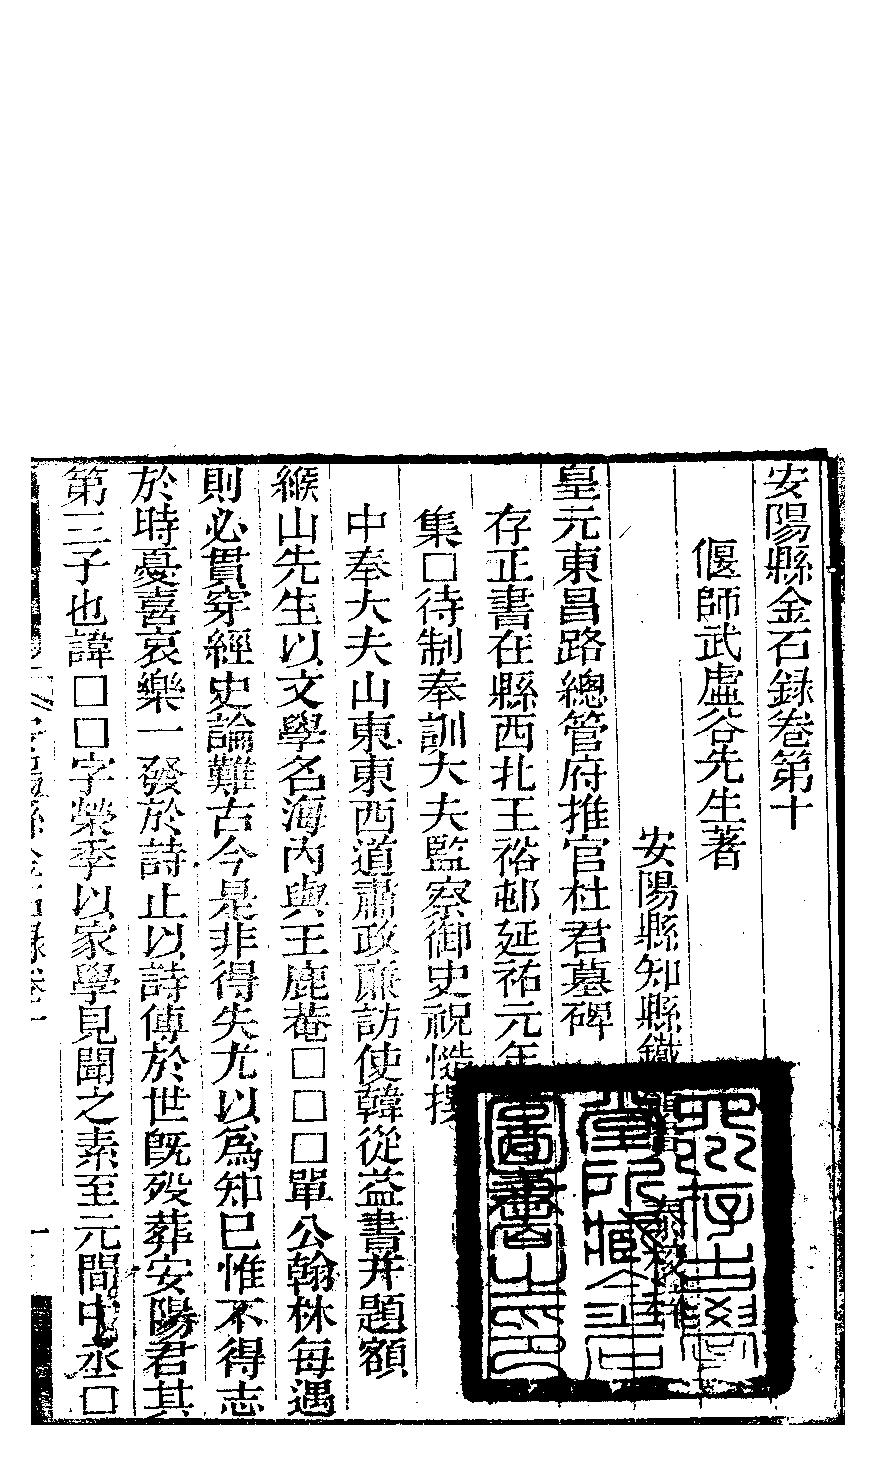 安陽縣金石録卷第十
偃師武虛谷先生著
安陽縣知縣鐵
皇元東昌路總管府推官杜君墓碑
存正書在縣西北王裕邨延祐元年
集□待制奉訓大夫監察御史祝慥撰
中奉大夫山東東西道肅政廉訪使韓從益書并題額
緱山先生以文學名海內與王鹿菴□□□單公翰林每遇
則必貫穿經史論難古今是非得失尤以為知己惟不得志
於時憂喜哀樂一發於詩止以詩傳於世既歿葬安陽君其
第三子也諱□□字榮季以家學見聞之素至元間中丞□